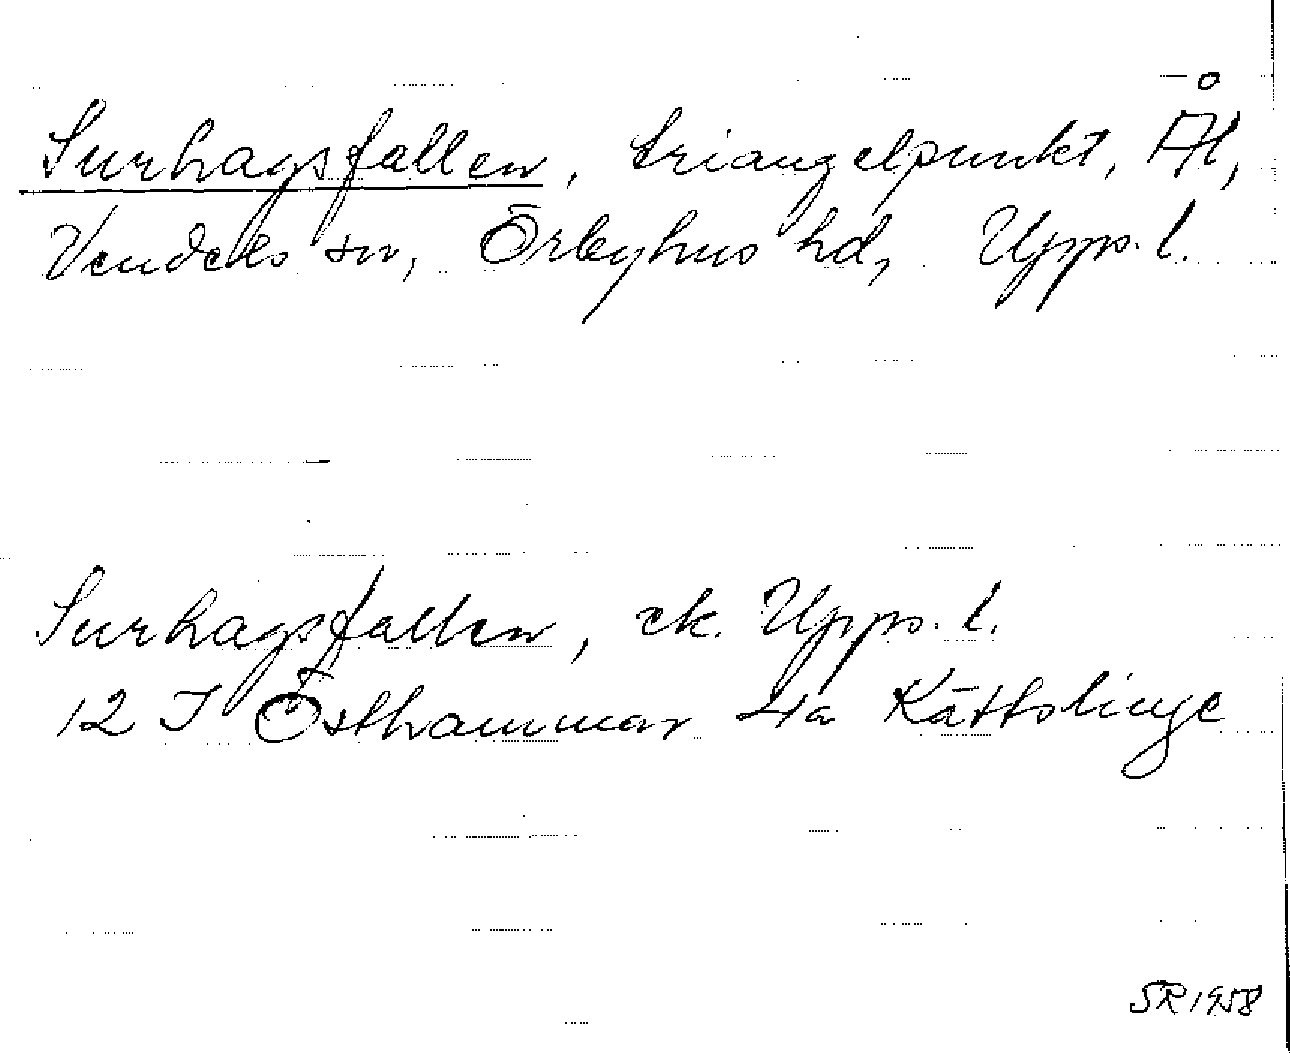 Surhagsfallen, triangelpunkt, Ål,
Vendels sn, Örbyhus hd, Upps. l.
Surhagsfallen, ek. Upps. l.
12 I Östhammar 4a Kättslinge
SR 1958